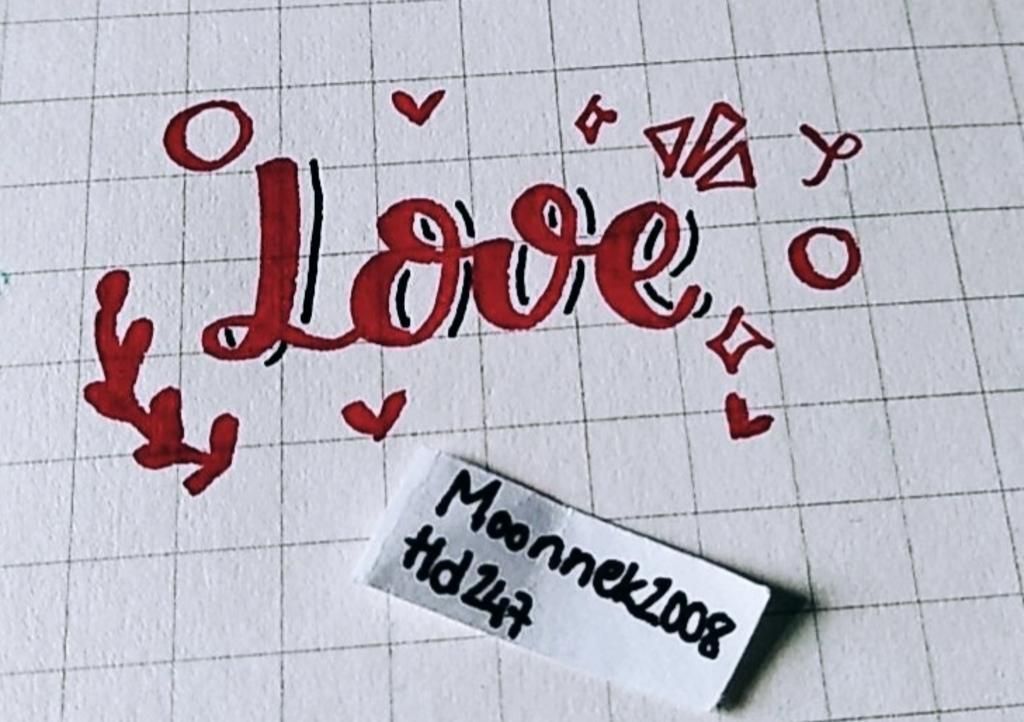 Love
Moonnek2008
Hd247